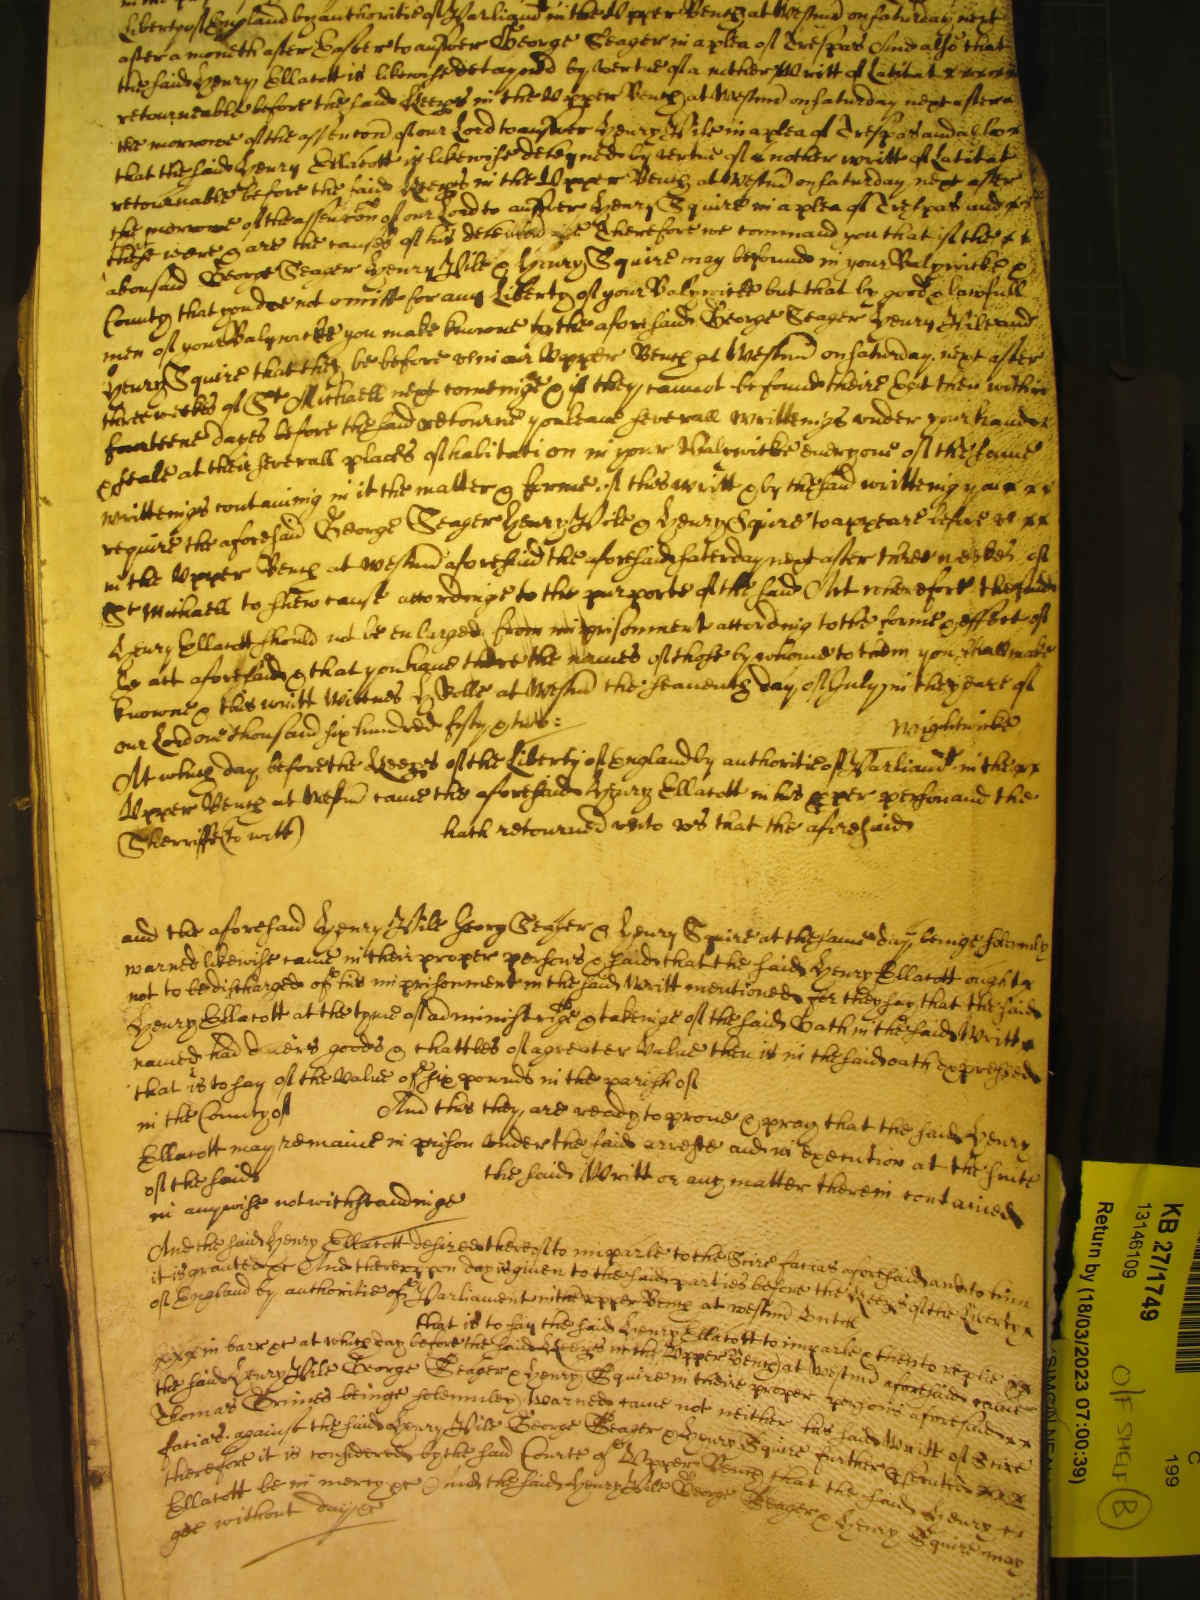 Liberty of England by authoritie of Parliam<sup>t</sup> in the Upper Bench at Westm<sup>r</sup> on Saturday next
after a moneth after Easter to answer George Seager in a plea of Trespas And also that
the said Henry Ellacott is likewise detayned by vertue of a nother Writt of Latitat
retourneable before the said Keep<sup>rs</sup> in the Upper Bench at Westm<sup>r</sup> on Saturday next after
the morrowe of the assention of our Lord to answer Henry Vile in a plea of Trespas and also
that the said Henry Ellacott is likewise deteyned by vertue of a nother writt of Latitat
retournable before the said Keep<sup>rs</sup> in the Upper Bench at Westm<sup>r</sup> on Saturday next after
the morrowe of the assention of our Lord to answer Henry Squire in a plea of Trespas and
these were & are the causes of his Therefore we command you that if the
abousaid George Seager Henry Vile & Henry Squire may be found in your Balywicke &
County that you doe not omitt for any Liberty of your Balywicke but that by good & lawfull
men of your Balywicke you make knowne to the aforesaid George Seager Henry Vile and
Henry Squire that they be before us in our Upper Bench at Westm<sup>r</sup> on Saturday next after
three weekes of S<sup>t</sup> Michaell next comeinge & if they cannot be found theire but then within
fourteene dayes before the said retourne you leaue severall writteings under your hand
& seale at their severall places of habitation in your Balywicke every one of the same
writteings containing in it the matter & forme of this writt & by the said writteing you
require the aforesaid George Seager Henry Vile & Henry Squire to appeare before us
in the Upper Bench at Westm<sup>r</sup> aforesaid the aforesaid Saterday next after three weekes of
S<sup>t</sup> Michaell to shew cause accordinge to the purporte of the said Act wherefore the said
Henry Ellacott should not be enlarged from imprisonment according to the forme & effect of
the act aforesaid & that you haue there the names of those by whome to them you shall make
knowne & this writt Wittnes H Rolle at Westm<sup>r</sup> the seaventh day of July in the yeare of
our Lord one thousand six hundred fifty & two:
Wightwicke
At which day before the Keep<sup>rs</sup> of the Liberty of England by authoritie of Parliam<sup>t</sup> in the
Upper Bench at Westm<sup>r</sup> came the aforesaid Henry Ellacott in his p<sup>r</sup>per person and the
Sherriffe (to witt)
hath retourned unto us that the aforesaid
and the aforesaid Henry Vile Georg Seager & Henry Squire at the same day beinge solemnly
warned likewise came in their proper persons & said that the said Henry Ellacott ought
not to be discharged of his imprisonment in the said Writt mentioned for they say that the said
Henry Ellacott at the tyme of administringe & takeinge of the said Oath in the said Writt
named had divers goods & chattles of a greater value then is in the said oath expressed
that is to say of the value of six pounds in the parish of
in the County of
And this they are ready to prove & pray that the said Henry
Ellacott may remaine in prison under the said arreste and in execution at the suite
of the said
the said Writt or any matter therein contained
in any wise notwithstandinge
And the said Henry Ellacott desired thereof to imparle to the Scire facias aforesaid and to him
it is granted &c And thereuppon day is given to the said parties before the Keep<sup>rs</sup> of the Liberty
of England by authoritie of Parliament in the upper Bench at Westm<sup>r</sup> untill
that is to say the said Henry Ellacott to imparle & then to replie
in barr &c at which day before the said Keep<sup>rs</sup> in the Upper Bench at Westm<sup>r</sup> aforesaid came
the said Henry Vile George Seager & Henry Squire in theire proper persons aforesaid
Thomas Grines beinge solemnley warned came not neither his said Writt of Scire
facias against the said Henry Vile George Seager & Henry Squire further p<sup>r</sup>secuted
therefore it is considered by the said Courte of Upper Bench that the said Henry
Ellacott be in mercy &c And the said Henry Vile George Seager & Henry Squire may
goe without day &c
KB 27/1749
13146109
Return by (18/03/2023 07:00:39)
C
199
SIMON NEAL
O/F SHELF B